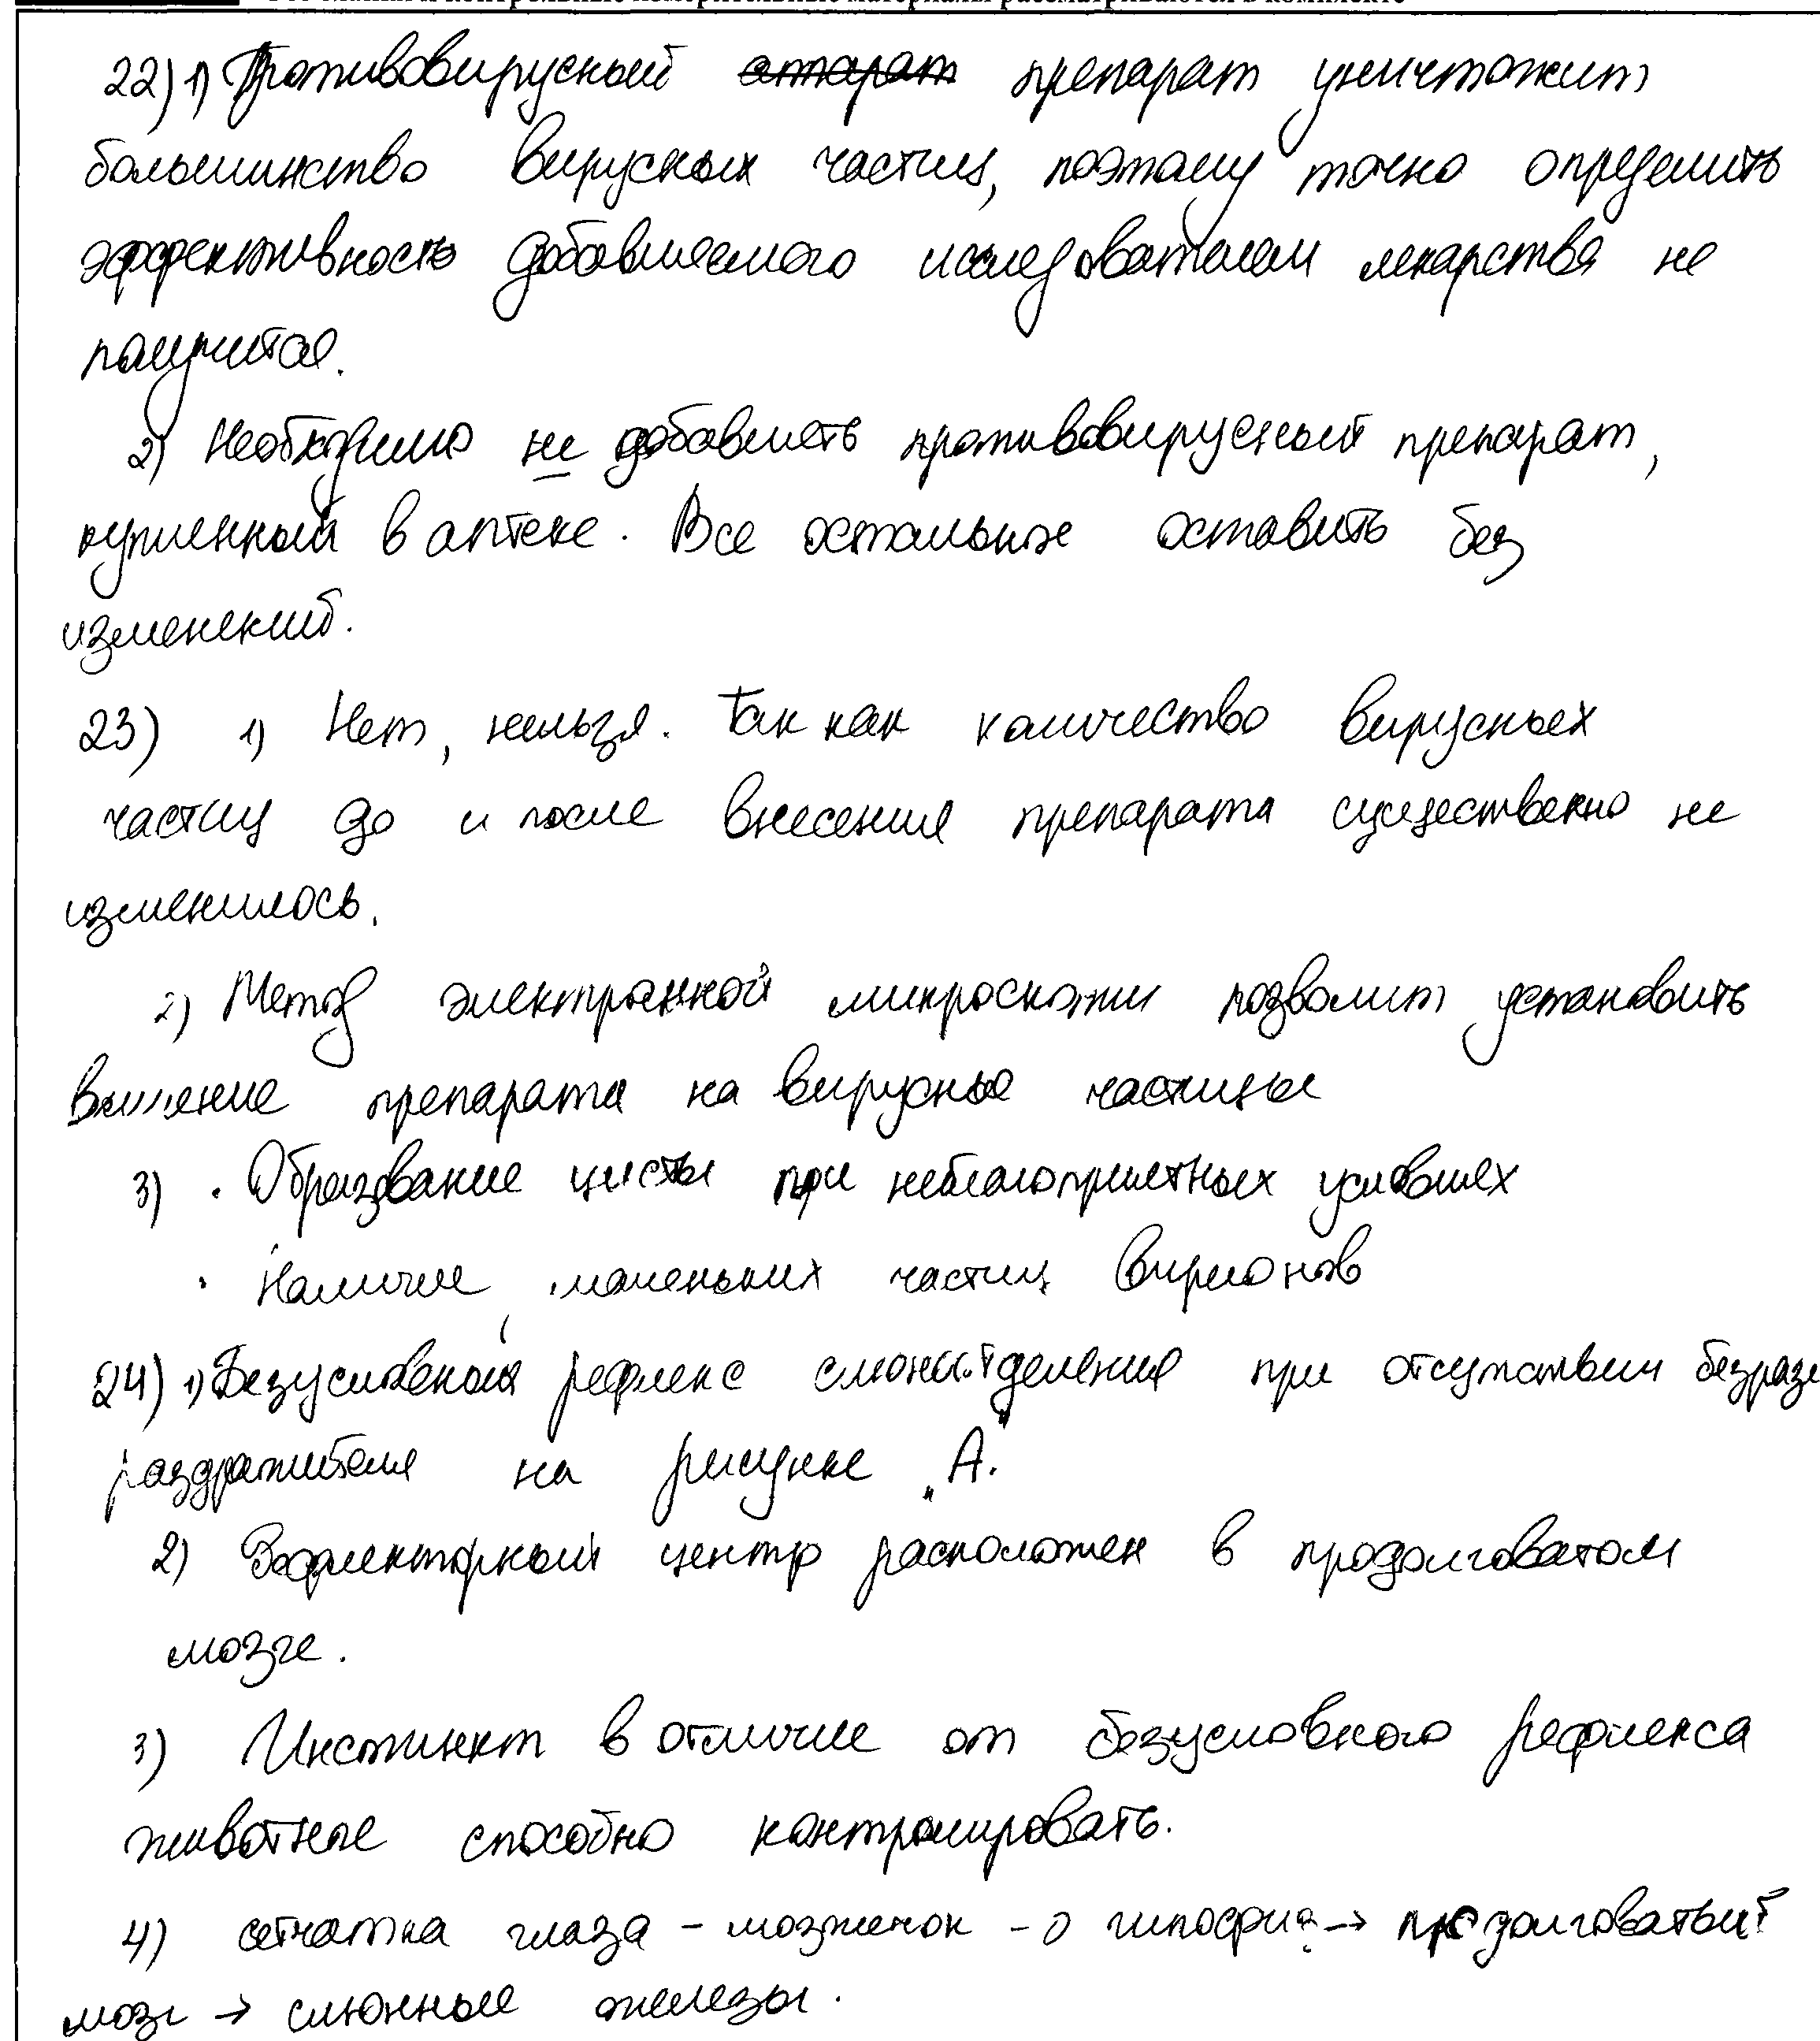 22) 1) Противовирусный аппарат препарат уничтожит
большинство вирусных частиц, поэтому точно определить
эффективность добавляемого исследователем лекарства не
получится.
2) Необходимо не добавлять противовирусный препарат,
купленный в аптеке. Все остальное оставить без
изменений.
23) 1) Нет, нельзя. Так как количество вирусных
частиц до и после внесения препарата существенно не
изменилось.
2) Метод электронной микроскопии позволит установить
влияние препарата на вирусные частицы
3) · Образование цисты при неблагоприятных условиях
· Наличие маленьких частиц вирионов
24) 1) Безусловный рефлекс слюноотделения при отсутствии
раздражителя на рисунке „А."
2) Рефлекторный центр расположен в продолговатом
мозге.
3) Инстинкт в отличие от безусловного рефлекса
животное способно контролировать.
4) сетчатка глаза - мозжечок - гипофиз → продолговатый
мозг → слюнные железы.